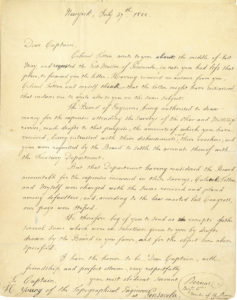 Newyork, July 29th 1822.
Dear Captain,
Colonel Totten wrote to you about the middle of last
May, and requested the Post Master of Pensacola, in case you had left that
place to forward you the letter. Having received no answer from you
Colonel Totten and myself think that the letter might have miscarried
that induces me to write also to you on the same subject.
The Board of Engineers being authorised to draw
money for the expenses attending the Survey of the Ohio and Mississippi
rivers, made drafts to that purpose, the amount of which you have
received, being entrusted with their disbursement,
and you
were requested by the Board to settle the account thereof with
the Treasury Department.
But that Department having considered the Board
accountable for the expenses incurred in that Survey, Colonel Totten
and myself were charged with the sums received and placed
among defaulters, and, according to the law enacted last Congress,
our pays were stopped.
We therefore beg of you to send us receipts of the
several sums which were in succession given to you by drafts
drawn by the Board in your favor, and for the object here above
specified.
I have the honor to be, Dear Captain, with
friendship and perfect esteem, very respectfully
your most obedient servant
Captain
H. Young of the Topographical Engineers
Pensacola
Bernard